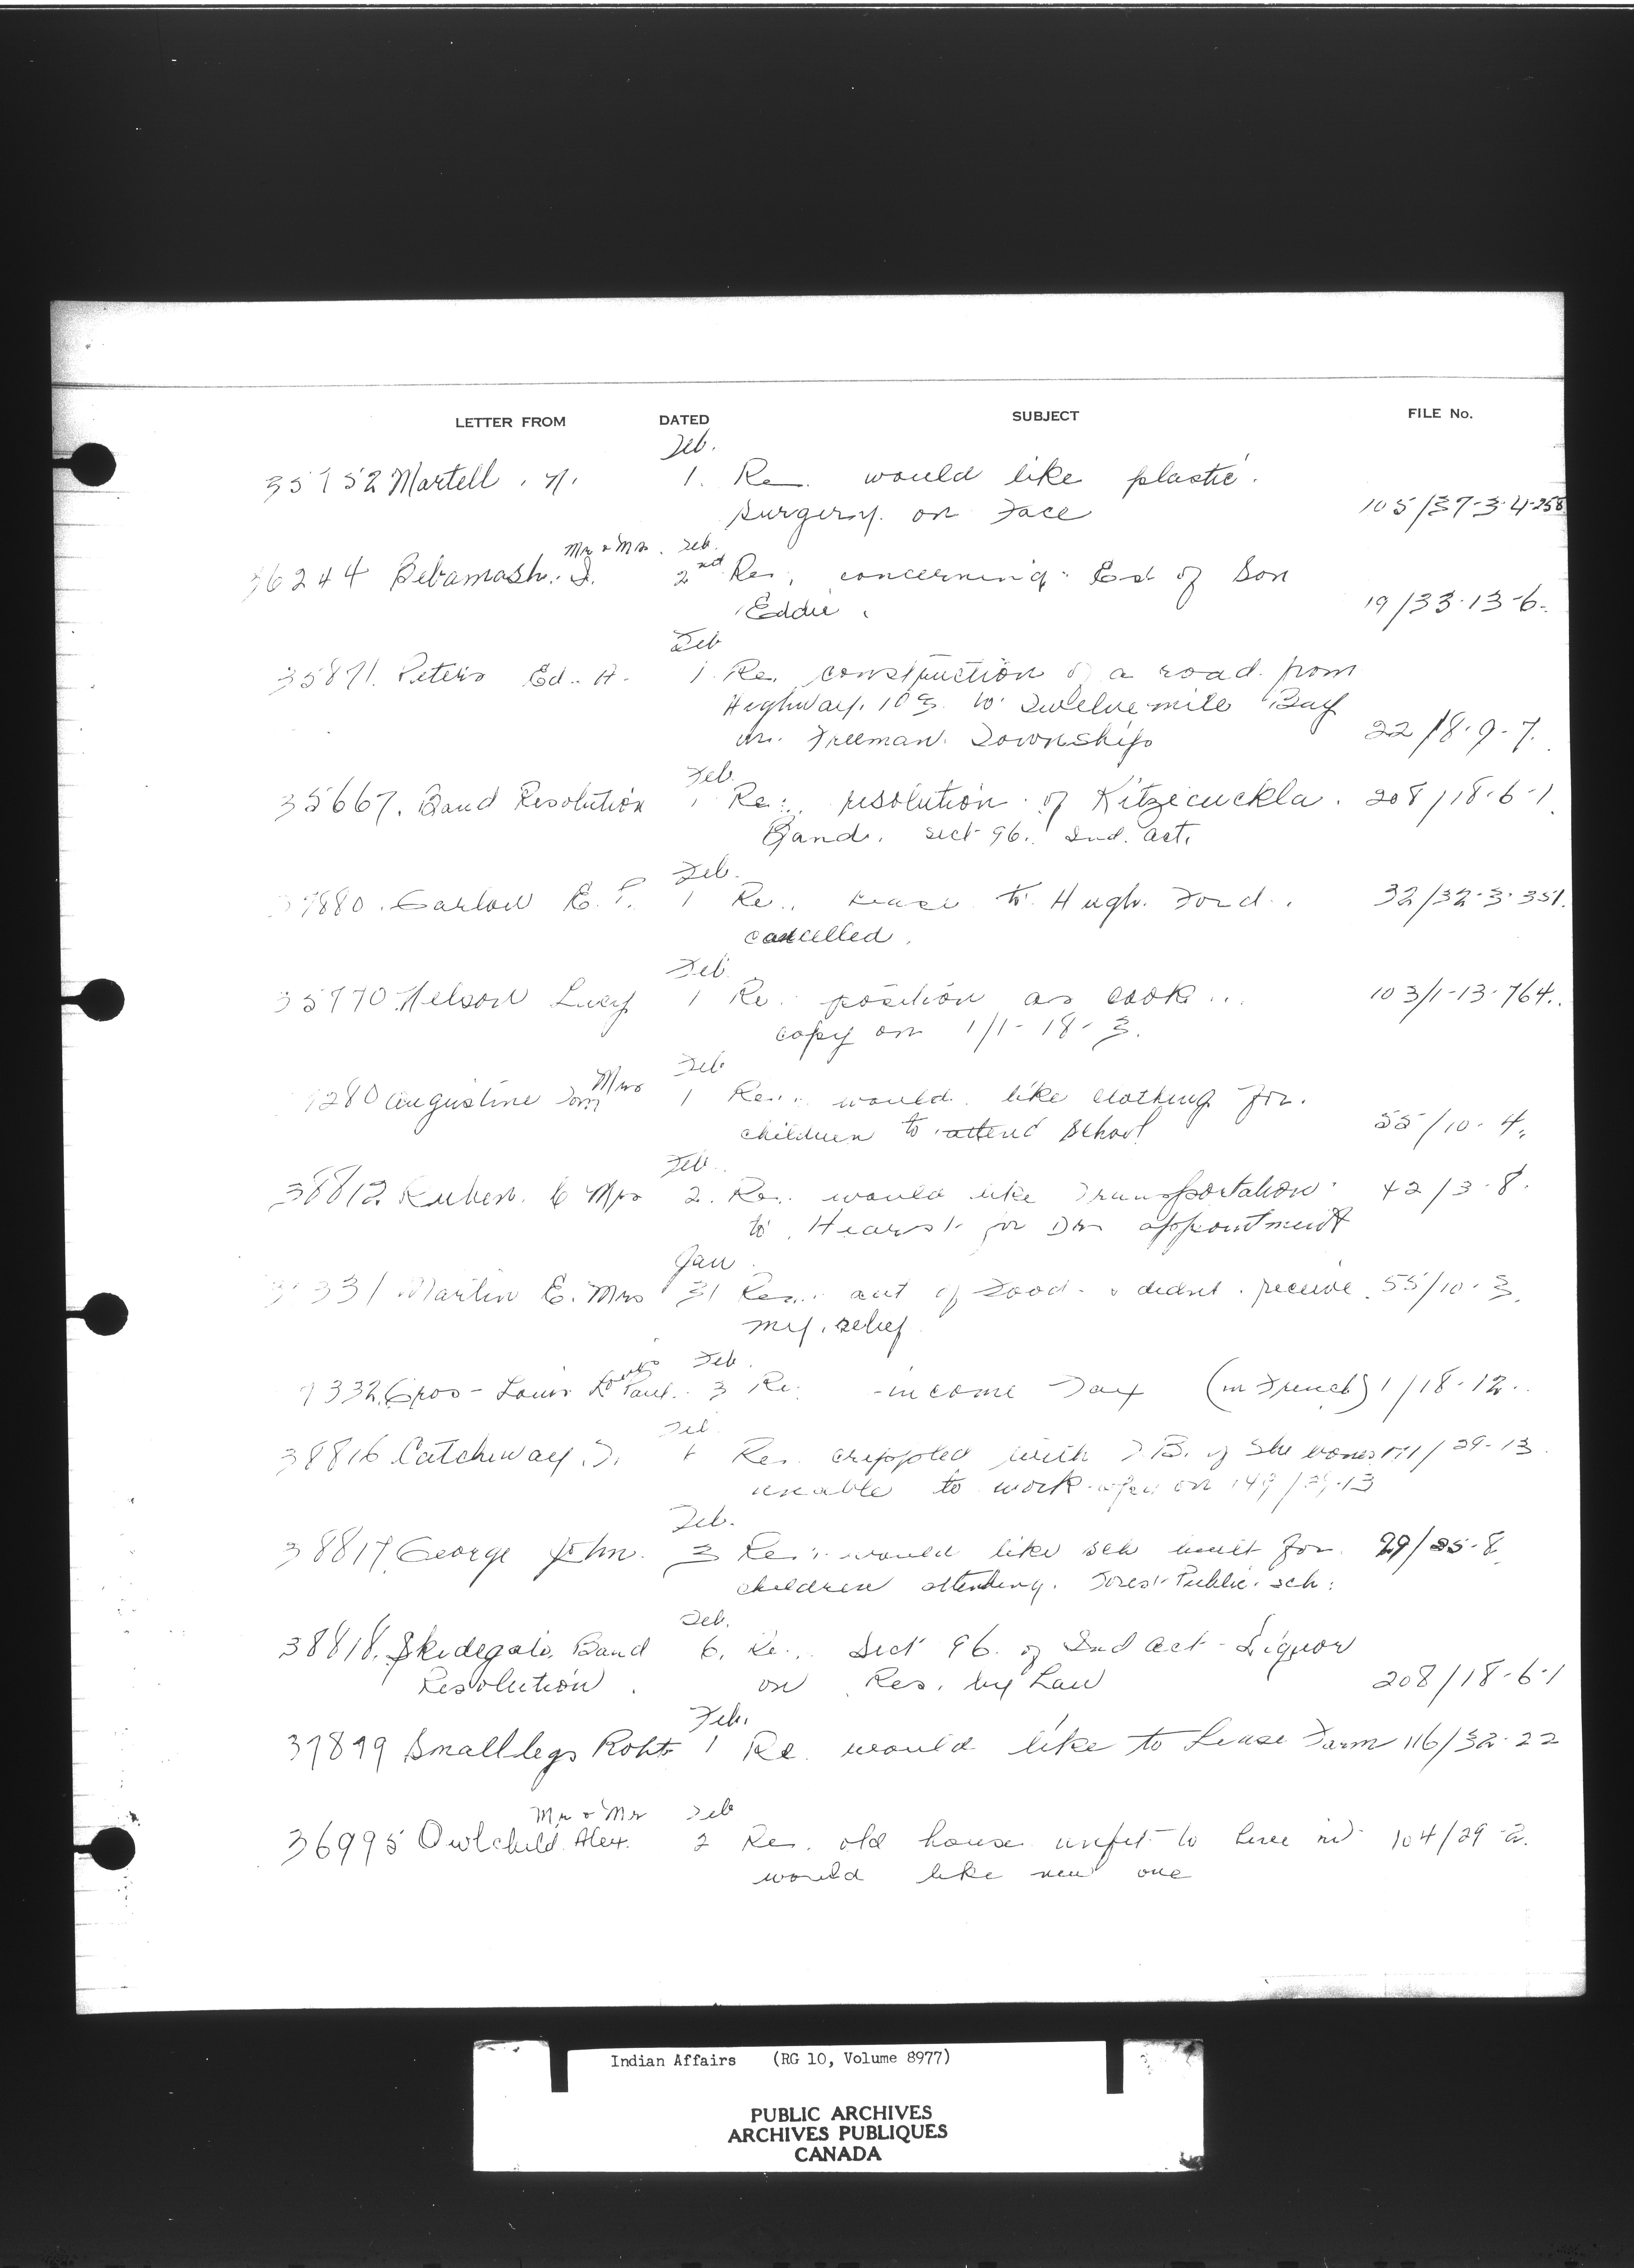 LETTER FROM DATED SUBJECT FILE No.
Feb.
35752 Martell. N. 1. Re. would like plastic.
surgery. on Face 105/37-3-4-258
Mr & Mrs. Feb.
36244 Bebamash. I. 2nd Re. concerning Ed of Son
Eddie. 19/33-13-6.
Feb
35871. Peters Ed. A. 1. Re. construction of a road from
Highway. 103 to Twelve mile Bay
in. Freeman. Township 22/18-9-7.
Feb.
35667. Band Resolution 1 Re: resolution of Kitzecuckla. 208/18-6-1
Band. sect 96. Ind. Act.
Feb.
Garlow E. P. 1 Re. Lease to Hugh. Ford.. 32/32-3-351.
cancelled.
Feb.
35770 Nelson Lucy 1 Re. position as cook... 103/1-13-764..
copy on 1/1-18-3.
Mrs Feb
1280 Augustine Tom 1 Re.. would. like clothing for.
children to attend school 55/10-4.
Feb.
38812. Mrs 2. Re.. would like Transportation. 42/3-8.
to Hearst for Drs appointment
Jan
331 Martin E. Mrs 31 Re.. out of Food. & didnt. receive 55/10-3.
my. relief
Feb.
332. Gros-Louis Paul. 3 Re: -income Tax (in French) 1/18-12..
Feb.
38816 Catcheway. J. Re. crippled with T.B. of the bones 171/29-13.
unable to work. on 149/29-13
Feb.
38817. George John. 3 Re.: would like sch built for. 29/25-8.
children attending. Forest Public. sch:
Feb.
38818. Skidegate. Band 6. Re.. Sect 96. of Ind Act - Liquor
Resolution. on Res. by Law 208/18-6-1
Feb.
37899 Smalllegs Robt 1 Re. would like to Lease Farm 116/32-22
Mr & Mrs Feb
36995 Owlchild. Alex. 2 Re. old house unfit to live in 104/29-2.
would like new one
Indian Affairs (RG 10, Volume 8977)
PUBLIC ARCHIVES
ARCHIVES PUBLIQUES
CANADA